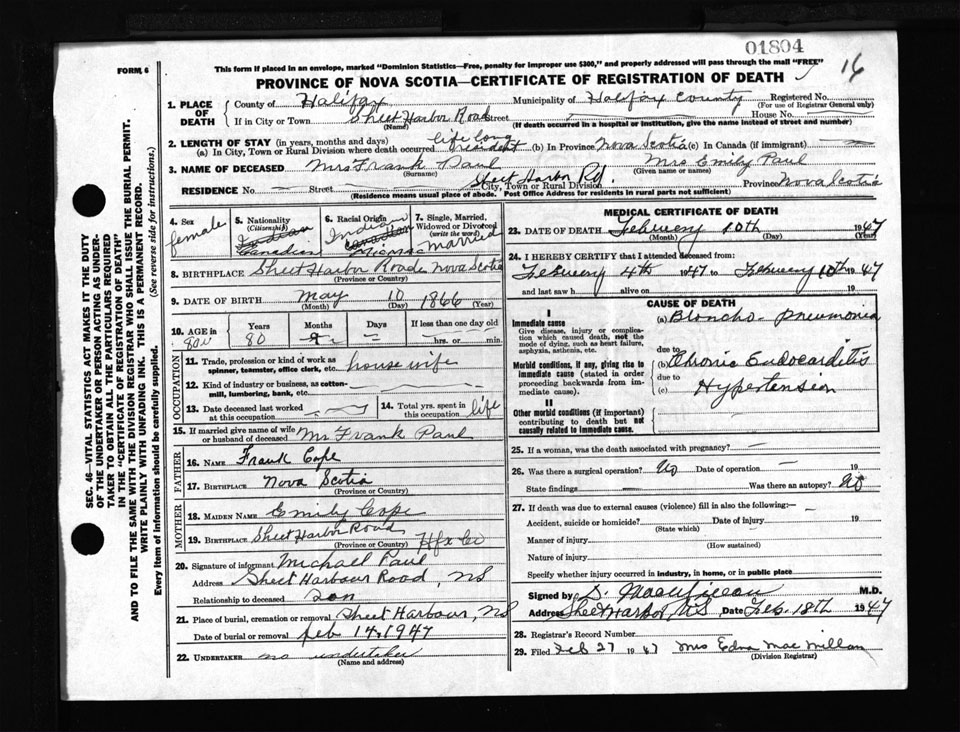 01804
16
FORM 6
This form if placed in an envelope, marked "Dominion Statistics—Free, penalty for improper use $300," and properly addressed will pass through the mail "FREE"
PROVINCE OF NOVA SCOTIA—CERTIFICATE OF REGISTRATION OF DEATH
1. PLACE OF DEATH County of Halifax Municipality of Halifax County Registered No.
(For use of Registrar General only)
If in City or Town Sheet Harbor Road Street House No.
(Name) (If death occurred in a hospital or institution, give the name instead of street and number)
2. LENGTH OF STAY (in years, months and days) life long
(a) In City, Town or Rural Division where death occurred resident (b) In Province Nova Scotia (c) In Canada (if immigrant)
3. NAME OF DECEASED Mrs Frank Paul Mrs Emily Paul
(Surname) (Given name or names)
RESIDENCE No. Street Sheet Harbor Rd. City, Town or Rural Division Province Nova Scotia
(Residence means usual place of abode. Post Office Address for residents in rural parts not sufficient)
4. Sex female
5. Nationality (Citizenship) Indian Canadian
6. Racial Origin Indian Canadian Micmac
7. Single, Married, Widowed or Divorced (write the word) Married
8. BIRTHPLACE Sheet Harbor Road Nova Scotia
(Province or Country)
9. DATE OF BIRTH May 10 1866
(Month) (Day) (Year)
10. AGE in 80 Years 80 Months Days If less than one day old hrs. or min.
OCCUPATION
11. Trade, profession or kind of work as spinner, teamster, office clerk, etc. house wife
12. Kind of industry or business, as cotton-mill, lumbering, bank, etc.
13. Date deceased last worked at this occupation
14. Total yrs. spent in this occupation life
15. If married give name of wife or husband of deceased Mr Frank Paul
FATHER
16. NAME Frank Cope
17. BIRTHPLACE Nova Scotia
(Province or Country)
MOTHER
18. MAIDEN NAME Emily Cope
19. BIRTHPLACE Sheet Harbor Road Hfx Co
(Province or Country)
20. Signature of informant Michael Paul
Address Sheet Harbour Road, NS
Relationship to deceased son
21. Place of burial, cremation or removal Sheet Harbour, NS
Date of burial or removal Feb 14, 1947
22. UNDERTAKER no undertaker
(Name and address)
MEDICAL CERTIFICATE OF DEATH
23. DATE OF DEATH February 10th 1947
(Month) (Day) (Year)
24. I HEREBY CERTIFY that I attended deceased from:
February 4th 1947 to February 10th 1947
and last saw h alive on 19
CAUSE OF DEATH
I
Immediate cause (a) Broncho-pneumonia
Give disease, injury or complication which caused death, not the mode of dying, such as heart failure, asphyxia, asthenia, etc.
due to
Morbid conditions, if any, giving rise to immediate cause (stated in order proceeding backwards from immediate cause). (b) Chronic Endocarditis
due to
(c) Hypertension
II
Other morbid conditions (if important) contributing to death but not causally related to immediate cause.
25. If a woman, was the death associated with pregnancy?
26. Was there a surgical operation? No Date of operation 19
State findings Was there an autopsy? No
27. If death was due to external causes (violence) fill in also the following:
Accident, suicide or homicide? Date of injury 19
(State which)
Manner of injury
(How sustained)
Nature of injury
Specify whether injury occurred in industry, in home, or in public place
Signed by M.D.
Address Sheet Harbor, NS Date Feb. 18th 1947
28. Registrar's Record Number
29. Filed Feb 27 1947 Mrs Edna MacMillan
(Division Registrar)
SEC. 46—VITAL STATISTICS ACT MAKES IT THE DUTY
OF THE UNDERTAKER OR PERSON ACTING AS UNDER-
TAKER TO OBTAIN ALL THE PARTICULARS REQUIRED
IN THE "CERTIFICATE OF REGISTRATION OF DEATH"
AND TO FILE THE SAME WITH THE DIVISION REGISTRAR WHO SHALL ISSUE THE BURIAL PERMIT.
WRITE PLAINLY WITH UNFADING INK. THIS IS A PERMANENT RECORD.
Every item of Information should be carefully supplied. (See reverse side for instructions.)